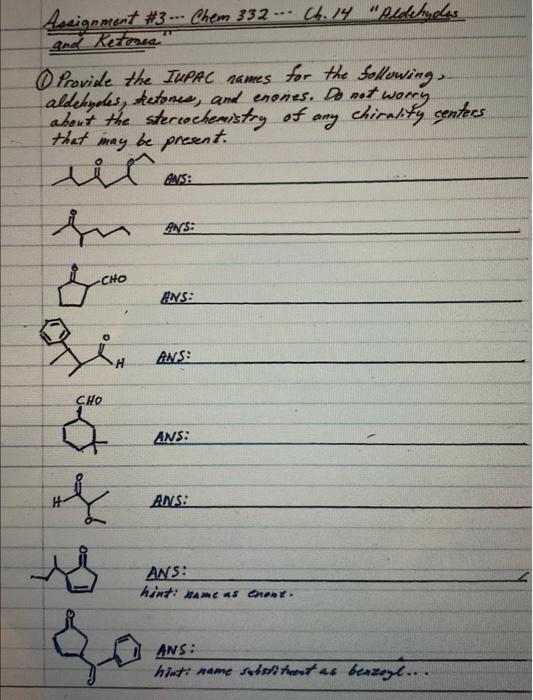 Assignment #3--- Chem 332--- Ch. 14 "Aldehydes
and Ketones"
① Provide the IUPAC names for the following,
aldehydes, ketones, and enones. Do not worry
about the stereochemistry of any chirality centers
that may be present.
O O
ANS:
O
ANS:
O
CHO
ANS:
O
H
ANS:
CHO
ANS:
O
H
O
ANS:
O
ANS:
hint: name as enone.
O
O
ANS:
hint: name substituent as benzoyl...